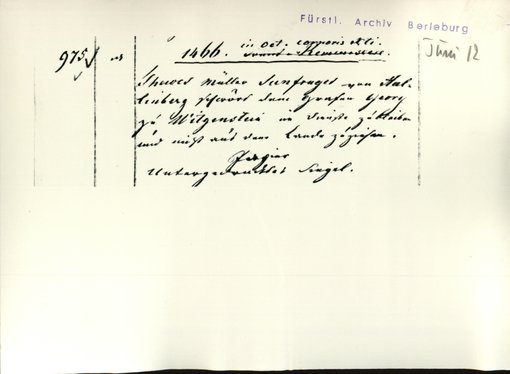 Fürstl. Archiv Berleburg
Juni 12
975
1466. in Oct. corporis Xti.
Thewes Müller Senfenger von Hal-
lenberg schwört dem Grafen Georg
zu Witgenstein im Dienste zu bleiben
und nicht aus dem Lande zu ziehen.
Papier
Untergedrucktes Siegel.